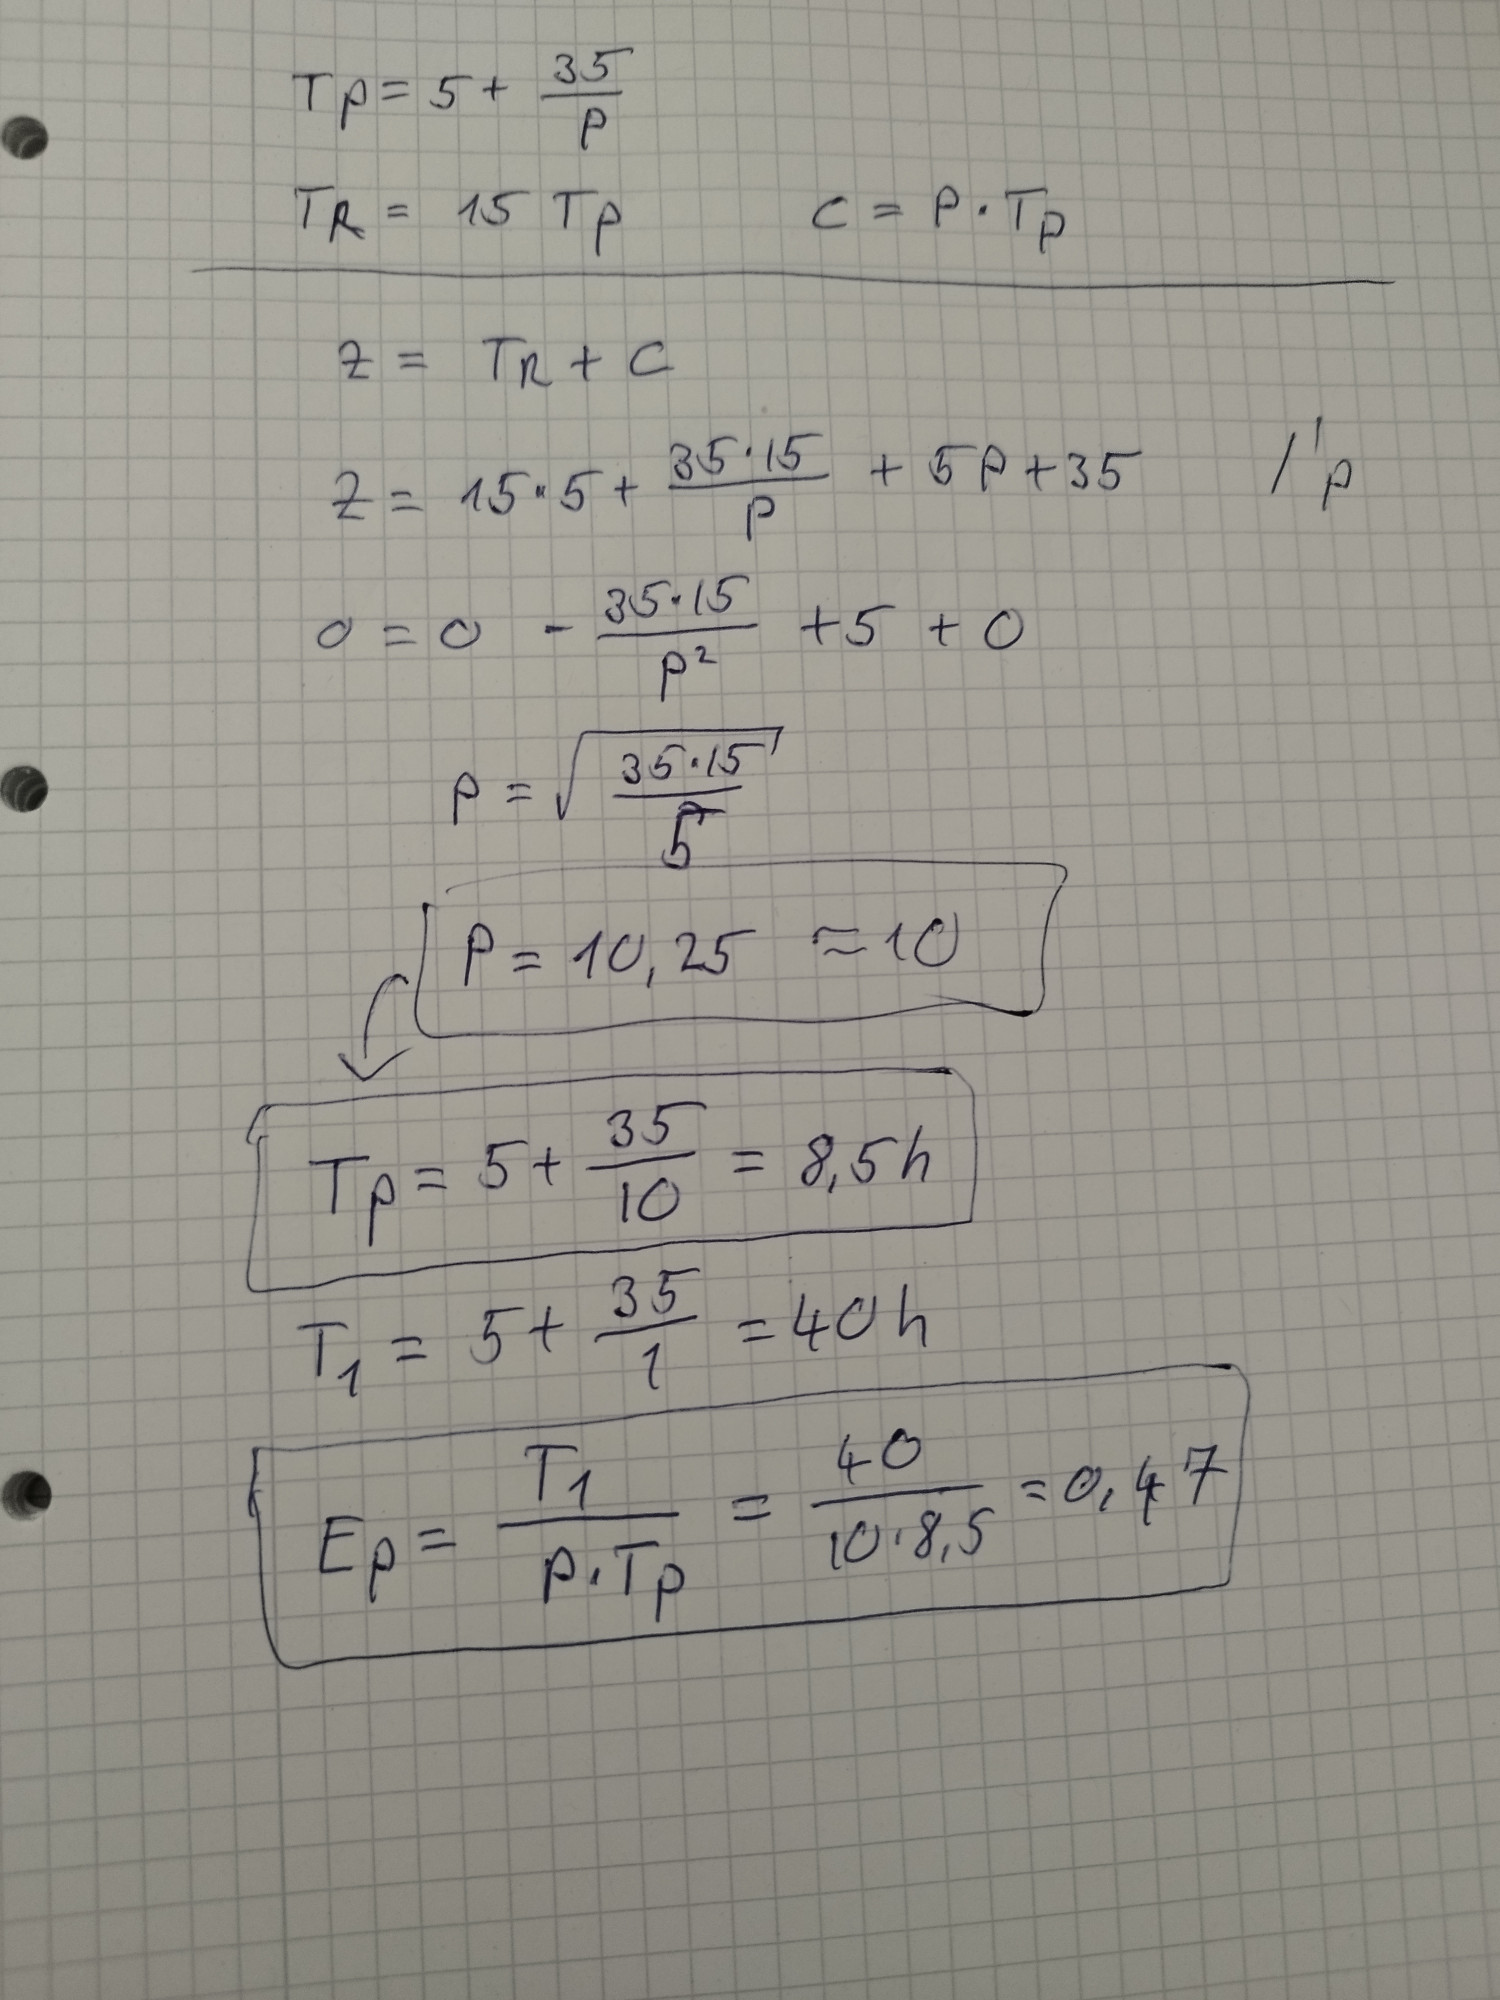 Tp = 5 + 35/p
TR = 15 Tp C = P · Tp
Z = TR + C
Z = 15·5 + 35·15/P + 5P + 35 /'p
0 = 0 - 35·15/p² + 5 + 0
P = √(35·15/5)
P = 10,25 ≈ 10
Tp = 5 + 35/10 = 8,5h
T1 = 5 + 35/1 = 40h
Ep = T1/(P·Tp) = 40/(10·8,5) = 0,47